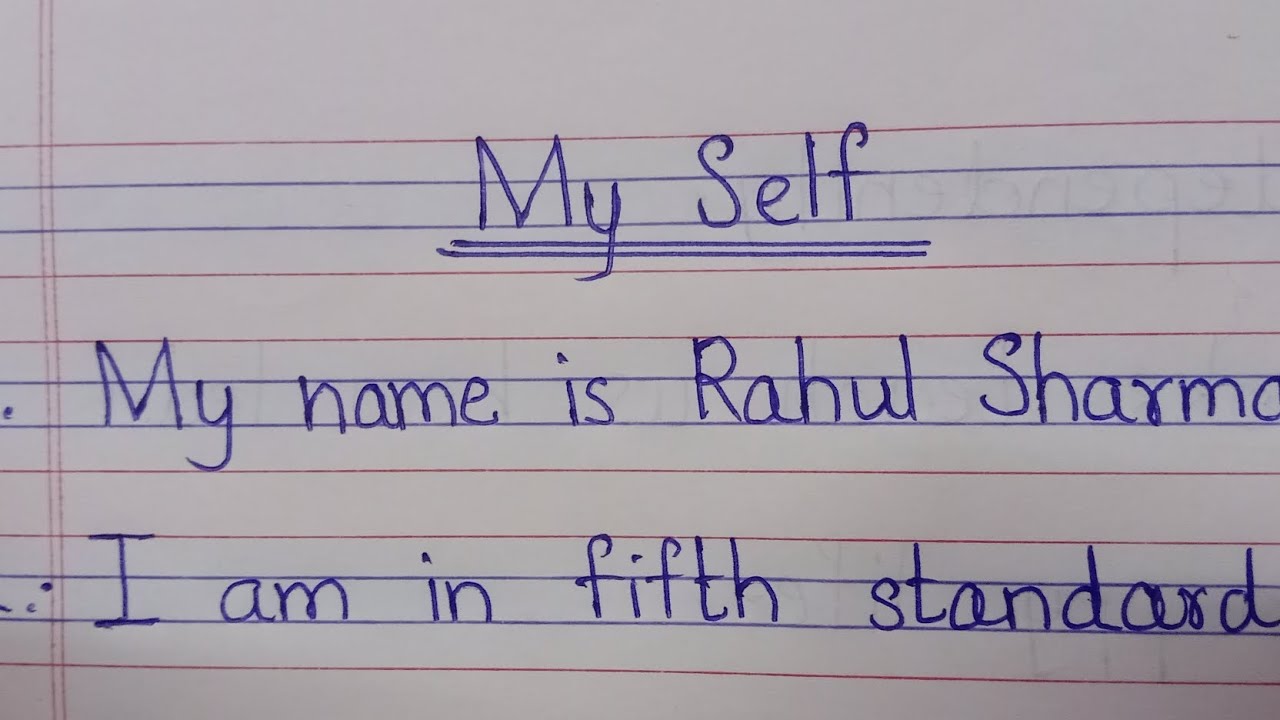 My Self
. My name is Rahul Sharma
.: I am in fifth standard